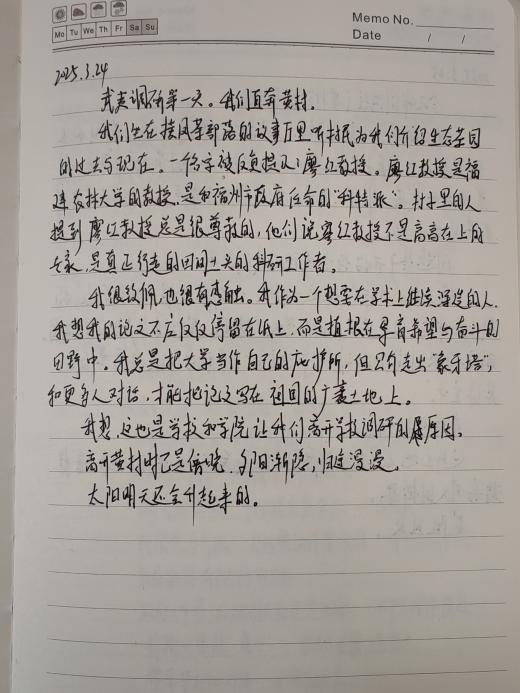 Memo No.
Mo Tu We Th Fr Sa Su
Date / /
2025.3.24
武夷调研第一天。我们直奔黄村。
我们坐在接风茶部落的故事厅里听村民为我们介绍生态茶园
的过去与现在。一个名字被反复提及：廖红教授。廖红教授是福
建农林大学的教授，是和福州市政府任命的“科特派”。村子里的人
提到廖红教授总是很尊敬的，他们说廖红教授不是高高在上的
专家，是真正行走的田间土头的科研工作者。
我很钦佩，也很有感触。我作为一个想要在学术上继续深造的人，
我想我的论文不应仅仅停留在纸上，而是植根在孕育希望与奋斗的
田野中。我总是把大学当作自己的庇护所，但只有走出“象牙塔”，
和更多人对话，才能把论文写在祖国的广袤土地上。
我想，这也是学校和学院让我们离开学校调研的原因。
离开黄村时已是傍晚，夕阳渐隐，归途漫漫。
太阳明天还会升起来的。